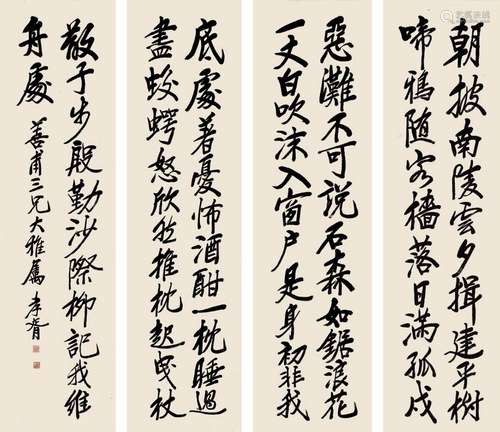 朝披南陵雲夕揖建平樹
啼鴉隨客檣落日滿孤戍
惡灘不可說石森如鋸浪花
一丈白吹沫入窗戶是身初非我
底處著憂怖酒酣一枕睡過
盡蛟𧍞怒欣然推枕起曳杖
散予步殷勤沙際柳記我維
舟處
善甫三兄大雅屬 孝胥